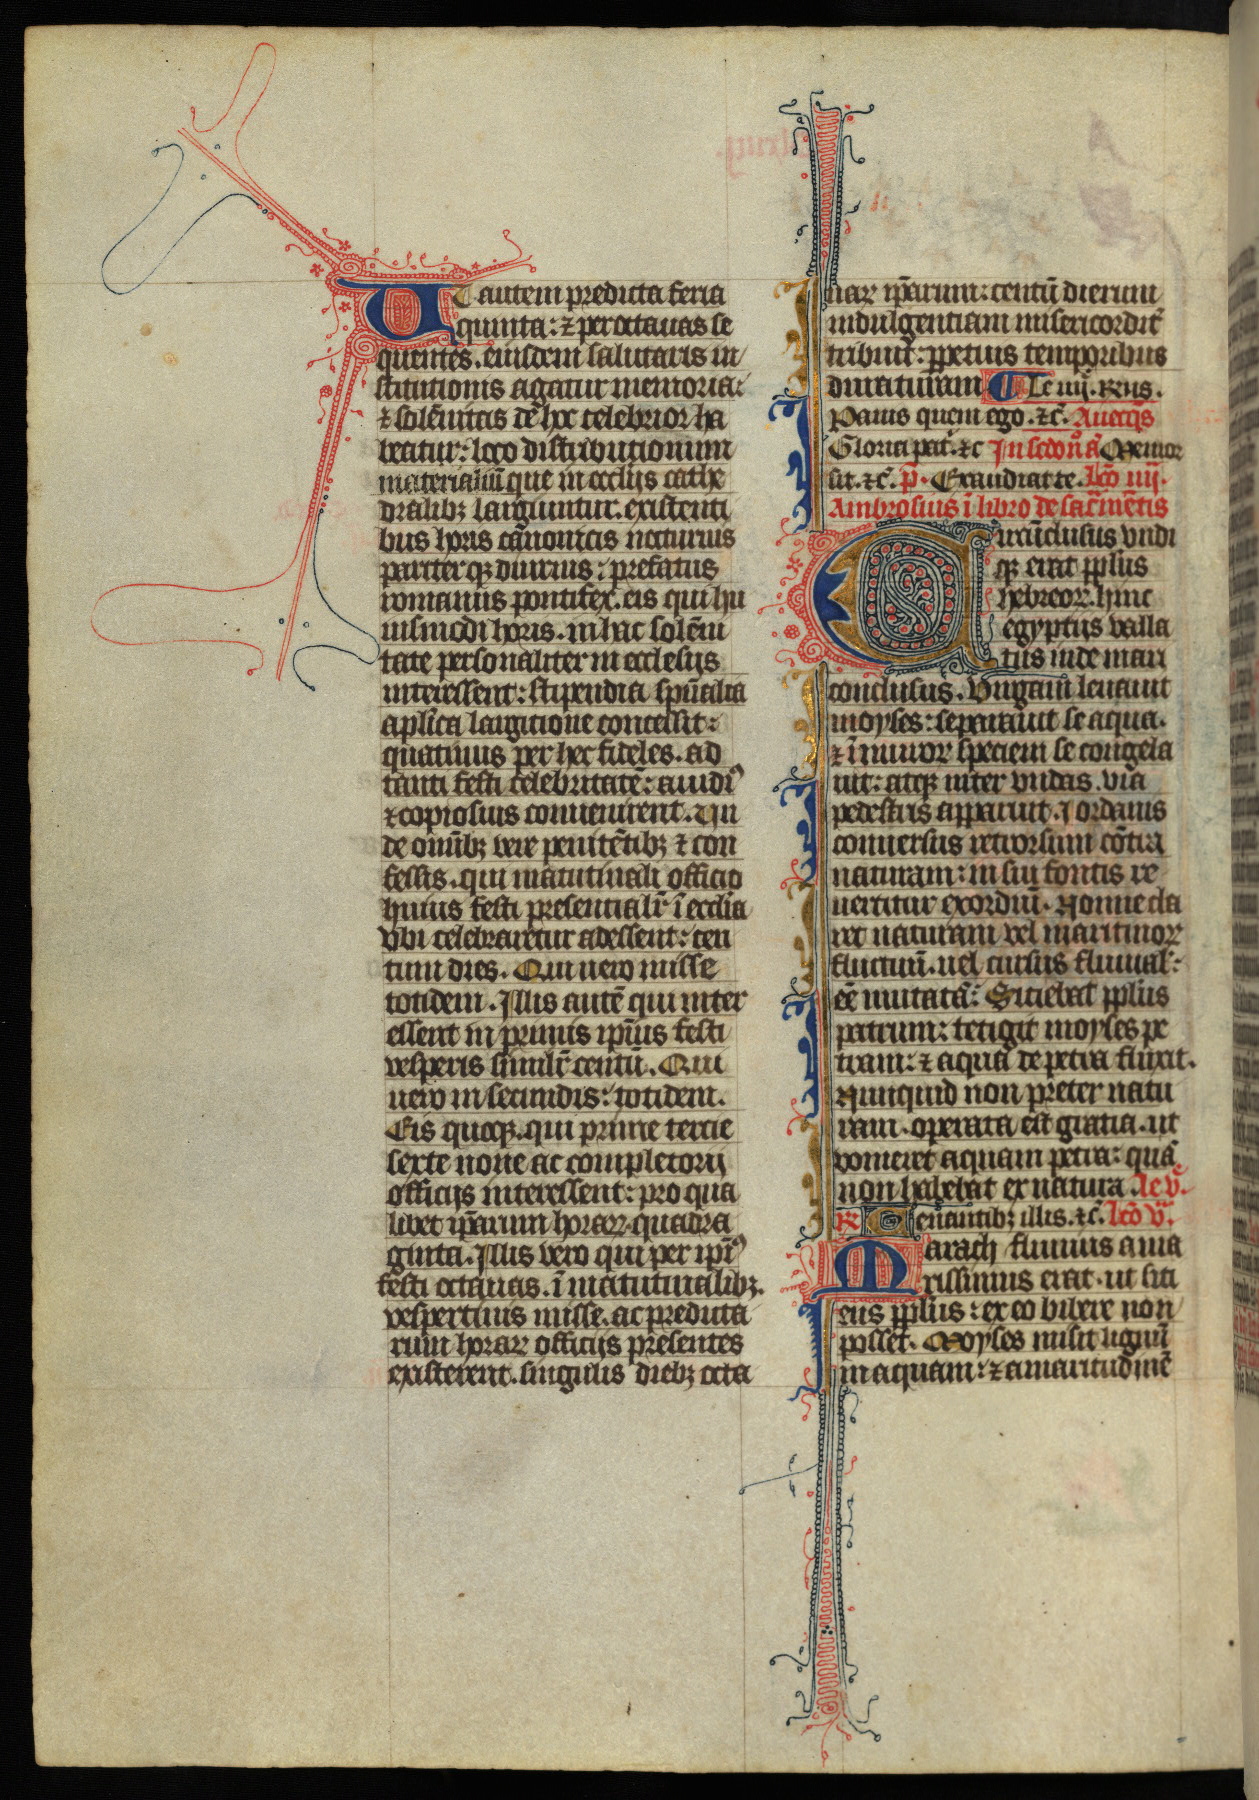 Ut autem predicta feria
quinta: ⁊ per octauas se
quentes. eiusdem salutaris in
stitutionis agatur memoria:
⁊ solēnitas de hoc celebrior ha
beatur: loco distributionum
materialiū que in ecclijs cathe
dralibꝫ largiuntur. existenti
bus horis canonicis nocturnis
pariter qꝫ diurnis: prefatus
romanus pontifex. eis qui hu
iusmodi horis. in hac solēni
tate personaliter in ecclesijs
interessent: stipendia spūalia
aplīca largitione concessit:
quatinus per hec fideles. ad
tanti festi celebritatē: auidiꝰ
⁊ copiosius conuenirent. Un
de omībꝫ vere penitētibꝫ ⁊ con
fessis. qui matutinali officio
huius festi presentialr̄ ī ecclīa
vbi celebraretur adessent: cen
tum dies. Qui uero misse
totidem. Illis autē qui inter
essent in primis ip̄ius festi
vesperis similr̄ centū. Qui
uero in secundis: totidem.
Eis quoqꝫ. qui prime tercie
sexte none ac completorij
officijs interessent: pro qua
libet ip̄arum horarꝝ. quadra
ginta. Illis vero qui per ip̄iꝰ
festi octauas. ī matutinalibꝫ.
vespertinis misse. ac predicta
rum horarꝝ officijs presentes
existerent. singulis diebꝫ octa
uarꝝ ip̄arum: centū dierum
indulgentiam misericordit̾
tribuit: ꝑpetuis temporibus
duraturam Te iiij. Rus.
Panis quem ego. ⁊c̄.
Gloria pat̾. ⁊c In scdo n̄ a Memor
sit. ⁊c̄. p̄. Exaudiat te. lc̄o iiij.
Ambrosius ī libro de sacramētis
Circūclusus vndi
qꝫ erat ppl̄us
hebreorꝝ. hinc
egyptijs valla
tus inde mari
conclusus. Virgam leuauit
moyses: separauit se aqua.
⁊ ī muror̄ speciem se congela
uit: atqꝫ inter vndas. via
pedestris apparuit. Iordanis
conuersus retrorsum cōtra
naturam: in sui fontis re
uertitur exordiū. Nonne cla
ret naturam vel maritimorꝝ
fluctuū. uel cursus fluuial̾:
eē mutatā: Sitiebat ppl̄us
patrum: tetigit moyses pe
tram: ⁊ aqua de petra fluxit.
Nunquid non preter natu
ram. operata est gratia. ut
vomeret aquam petra: quā
non habebat ex natura
℟ Cenantibꝫ illis. ⁊c̄. lc̄o v̄.
Marach fluuius ama
rissimus erat. ut siti
ens ppl̄us: ex eo bibere non
posset. Moyses misit lignū
in aquam: ⁊ amaritudinē